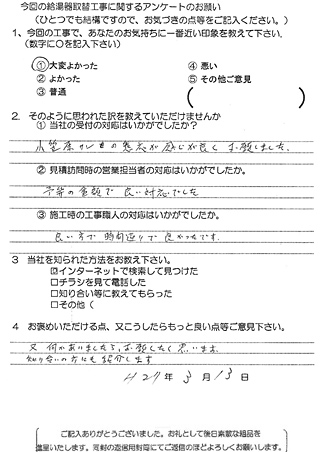 今回の給湯器取替工事に関するアンケートのお願い
(ひとつでも結構ですので、お気づきの点等をご記入ください。)
1、今回の工事で、あなたのお気持ちに一番近い印象を教えて下さい。
(数字に○を記入下さい)
① 大変よかった ④ 悪い
② よかった ⑤ その他ご意見
③ 普通 ( )
2. そのように思われた訳を教えていただけませんか
① 当社の受付の対応はいかがでしたか?
の意志が感じが良く お願しました
② 見積訪問時の営業担当者の対応はいかがでしたか。
予算の金額で 良い対応でした
③ 施工時の工事職人の対応はいかがでしたか?
良い方で 時間通りで 良かったです。
3 当社を知られた方法をお教え下さい。
☑インターネットで検索して見つけた
□チラシを見て電話した
□知り合い等に教えてもらった
□その他(
4 お褒めいただける点、又こうしたらもっと良い点等ご意見下さい。
又 何かありましたら、お願したく思います。
知り合いの方にも紹介します
H27年 3月 13日
ご記入ありがとうございました。お礼として後日素敵な粗品を
進呈いたします。同封の返信用封筒にてご返信のほどよろしくお願いします。